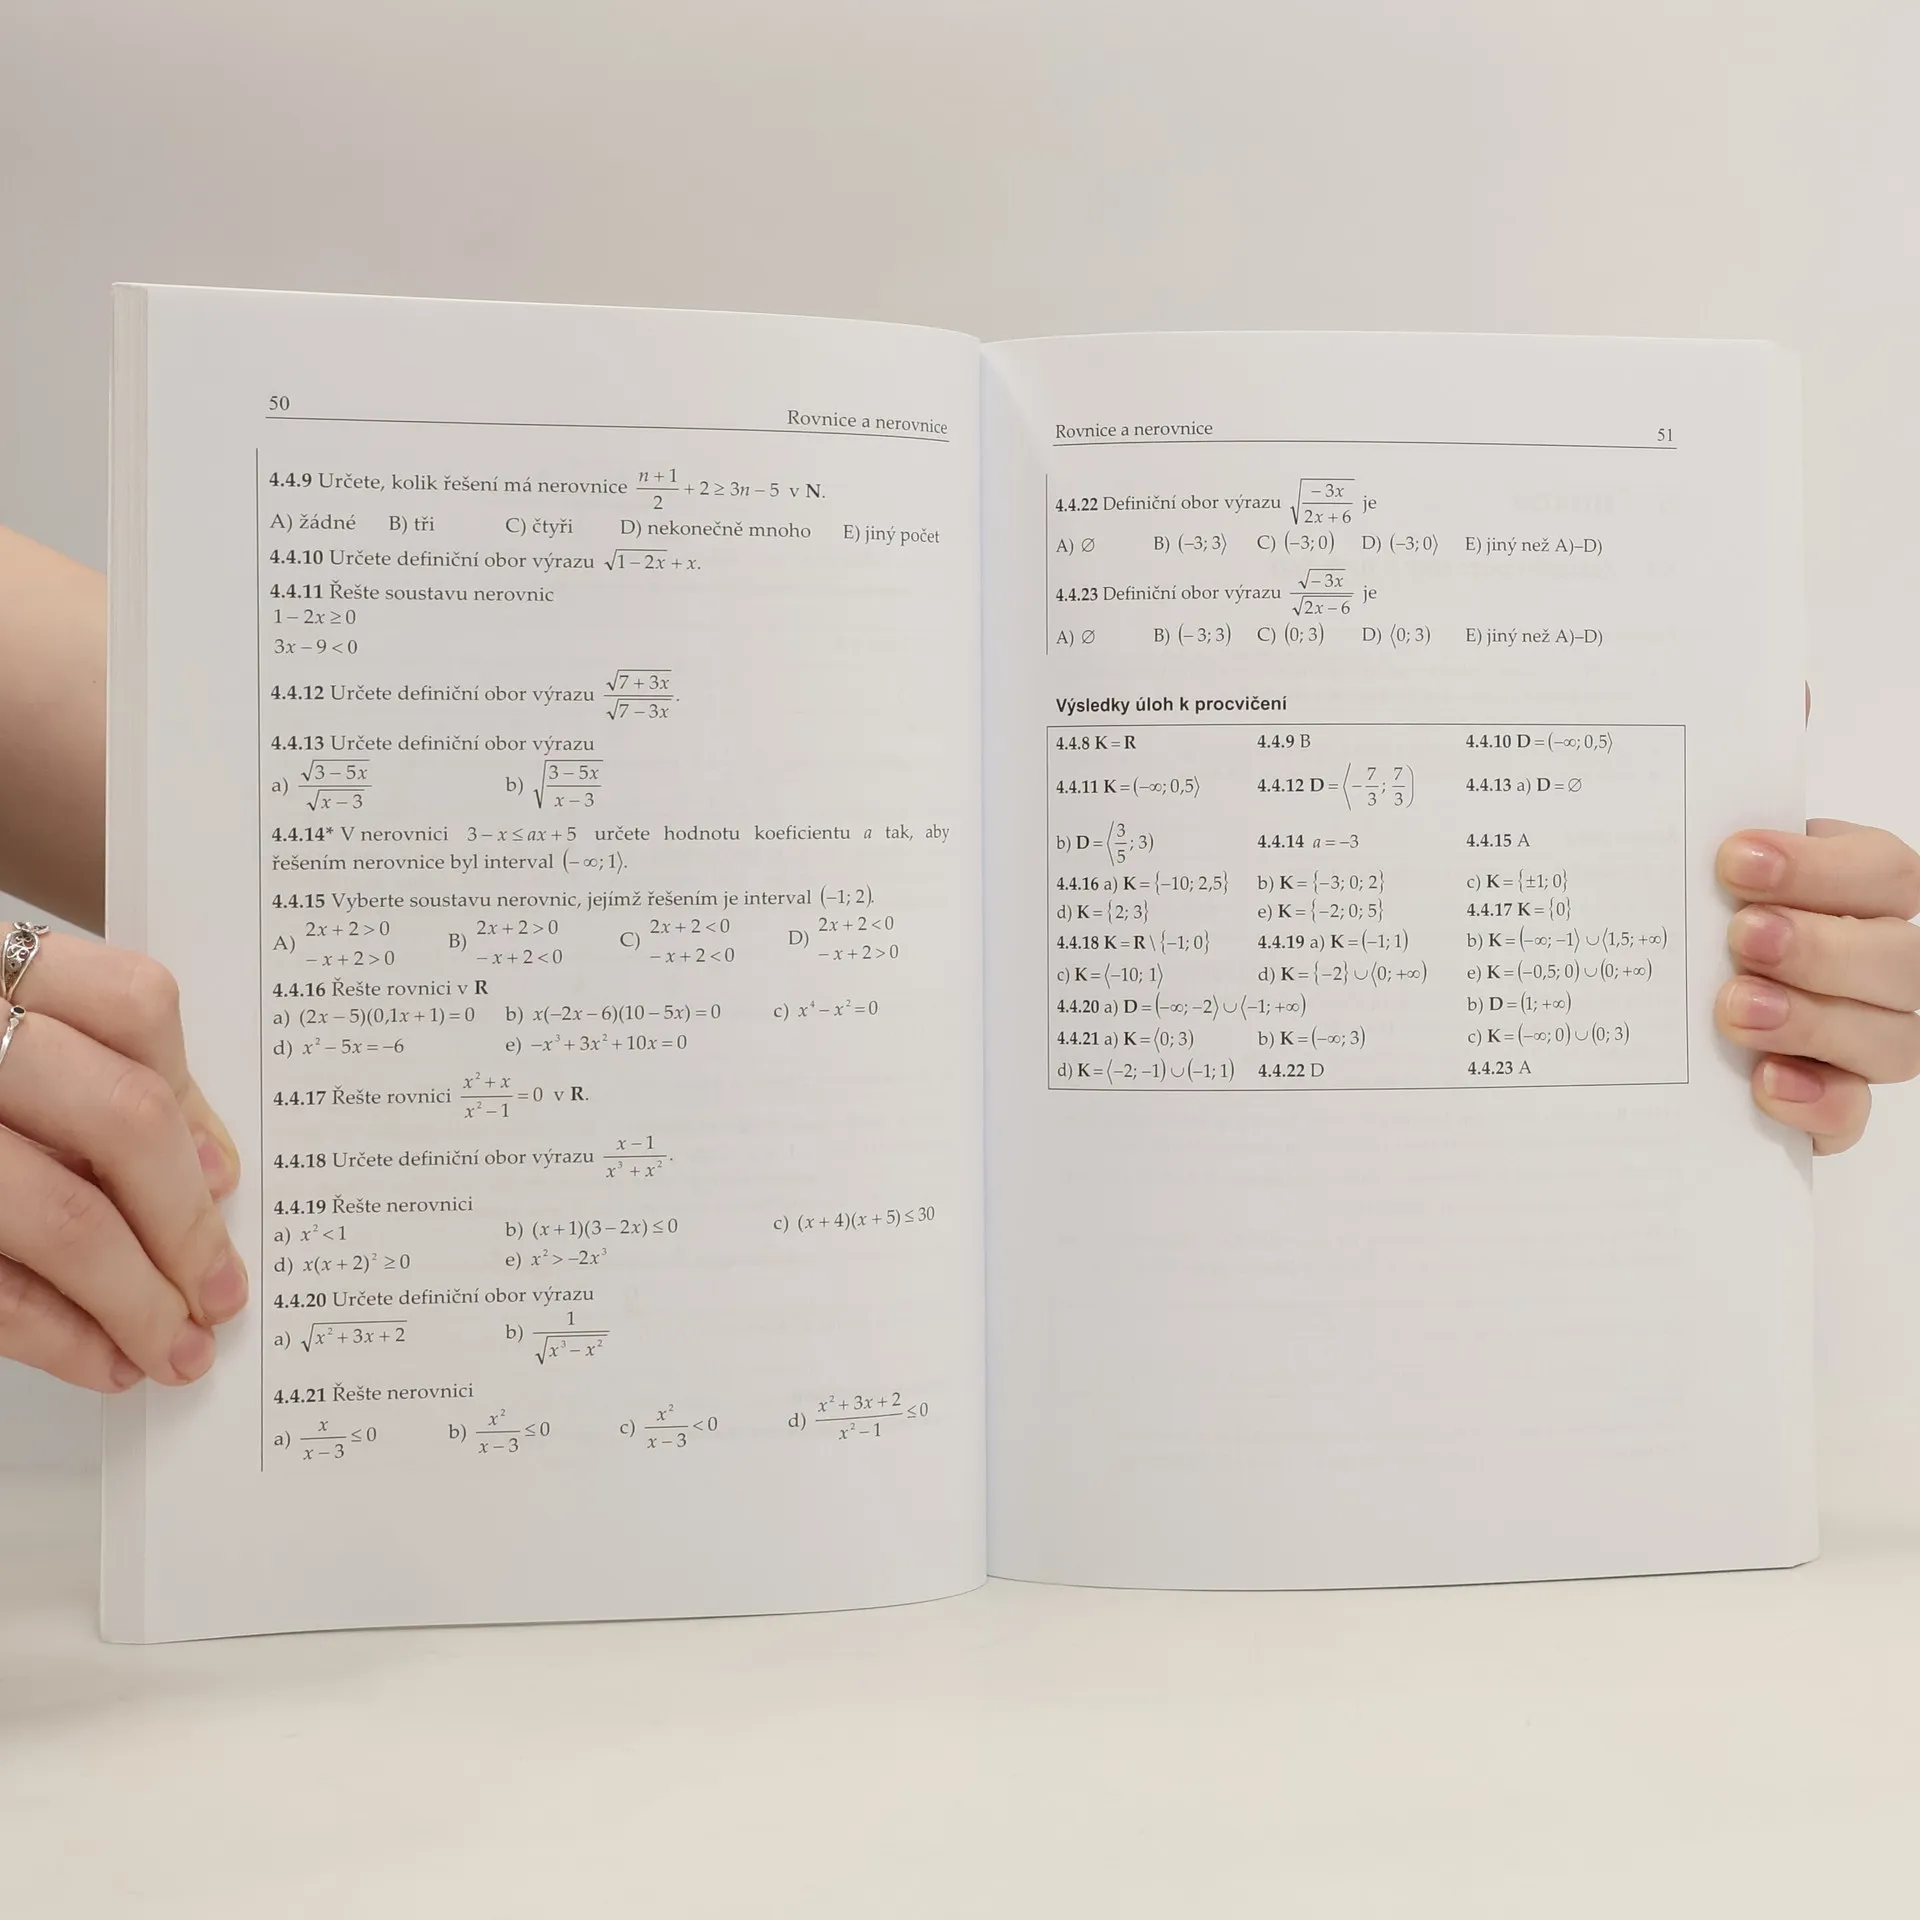 50
Rovnice a nerovnice
4.4.9 Určete, kolik řešení má nerovnice (n+1)/2 + 2 ≥ 3n − 5 v N.
A) žádné B) tři C) čtyři D) nekonečně mnoho E) jiný počet
4.4.10 Určete definiční obor výrazu √(1−2x) + x.
4.4.11 Řešte soustavu nerovnic
1 − 2x ≥ 0
3x − 9 < 0
4.4.12 Určete definiční obor výrazu √(7+3x)/√(7−3x).
4.4.13 Určete definiční obor výrazu
a) √(3−5x)/√(x−3) b) √((3−5x)/(x−3))
4.4.14* V nerovnici 3 − x ≤ ax + 5 určete hodnotu koeficientu a tak, aby
řešením nerovnice byl interval (−∞; 1⟩.
4.4.15 Vyberte soustavu nerovnic, jejímž řešením je interval (−1; 2).
A) 2x + 2 > 0 B) 2x + 2 > 0 C) 2x + 2 < 0 D) 2x + 2 < 0
− x + 2 > 0 − x + 2 < 0 − x + 2 < 0 − x + 2 > 0
4.4.16 Řešte rovnici v R
a) (2x − 5)(0,1x + 1) = 0 b) x(−2x − 6)(10 − 5x) = 0 c) x⁴ − x² = 0
d) x² − 5x = −6 e) −x³ + 3x² + 10x = 0
4.4.17 Řešte rovnici (x² + x)/(x² − 1) = 0 v R.
4.4.18 Určete definiční obor výrazu (x − 1)/(x³ + x²).
4.4.19 Řešte nerovnici
a) x² < 1 b) (x + 1)(3 − 2x) ≤ 0 c) (x + 4)(x + 5) ≤ 30
d) x(x + 2)² ≥ 0 e) x² > −2x³
4.4.20 Určete definiční obor výrazu
a) √(x² + 3x + 2) b) 1/√(x³ − x²)
4.4.21 Řešte nerovnici
a) x/(x − 3) ≤ 0 b) x²/(x − 3) ≤ 0 c) x²/(x − 3) < 0 d) (x² + 3x + 2)/(x² − 1) ≤ 0
Rovnice a nerovnice
51
4.4.22 Definiční obor výrazu √(−3x/(2x + 6)) je
A) ∅ B) (−3; 3⟩ C) (−3; 0) D) (−3; 0⟩ E) jiný než A)–D)
4.4.23 Definiční obor výrazu √(−3x)/√(2x − 6) je
A) ∅ B) (−3; 3) C) (0; 3) D) ⟨0; 3) E) jiný než A)–D)
Výsledky úloh k procvičení
4.4.8 K = R 4.4.9 B 4.4.10 D = (−∞; 0,5⟩
4.4.11 K = (−∞; 0,5⟩ 4.4.12 D = ⟨−7/3; 7/3) 4.4.13 a) D = ∅
b) D = ⟨3/5; 3) 4.4.14 a = −3 4.4.15 A
4.4.16 a) K = {−10; 2,5} b) K = {−3; 0; 2} c) K = {±1; 0}
d) K = {2; 3} e) K = {−2; 0; 5} 4.4.17 K = {0}
4.4.18 K = R \ {−1; 0} 4.4.19 a) K = (−1; 1) b) K = (−∞; −1⟩ ∪ ⟨1,5; +∞)
c) K = ⟨−10; 1⟩ d) K = {−2} ∪ ⟨0; +∞) e) K = (−0,5; 0) ∪ (0; +∞)
4.4.20 a) D = (−∞; −2⟩ ∪ ⟨−1; +∞) b) D = (1; +∞)
4.4.21 a) K = ⟨0; 3) b) K = (−∞; 3) c) K = (−∞; 0) ∪ (0; 3)
d) K = ⟨−2; −1) ∪ (−1; 1) 4.4.22 D 4.4.23 A